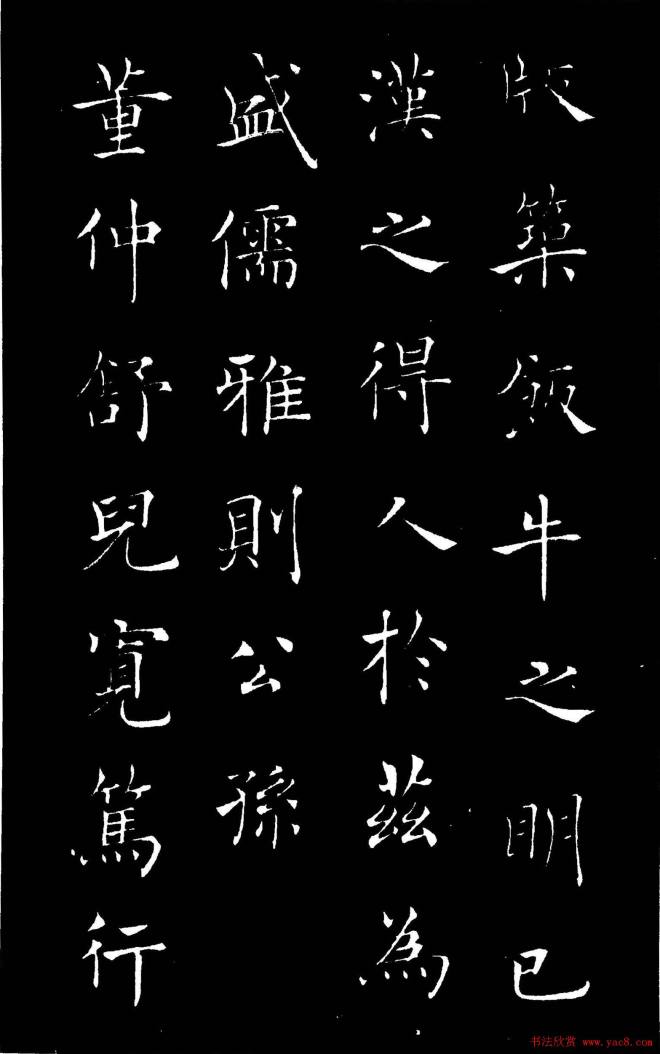 版築飯牛之明已
漢之得人於茲為
盛儒雅則公孫
董仲舒兒寛篤行
书法欣赏 www.yac8.com